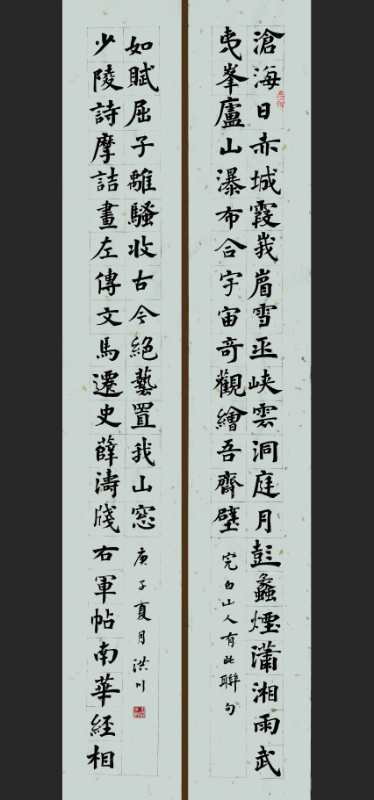 滄海日赤城霞峩眉雪巫峽雲洞庭月彭蠡煙瀟湘雨武
夷峯廬山瀑布合宇宙奇觀繪吾齋壁
完白山人有此聯句
少陵詩摩詰畫左傳文馬遷史薛濤牋右軍帖南華經相
如賦屈子離騷收古今絕藝置我山窓
庚子夏月洪川